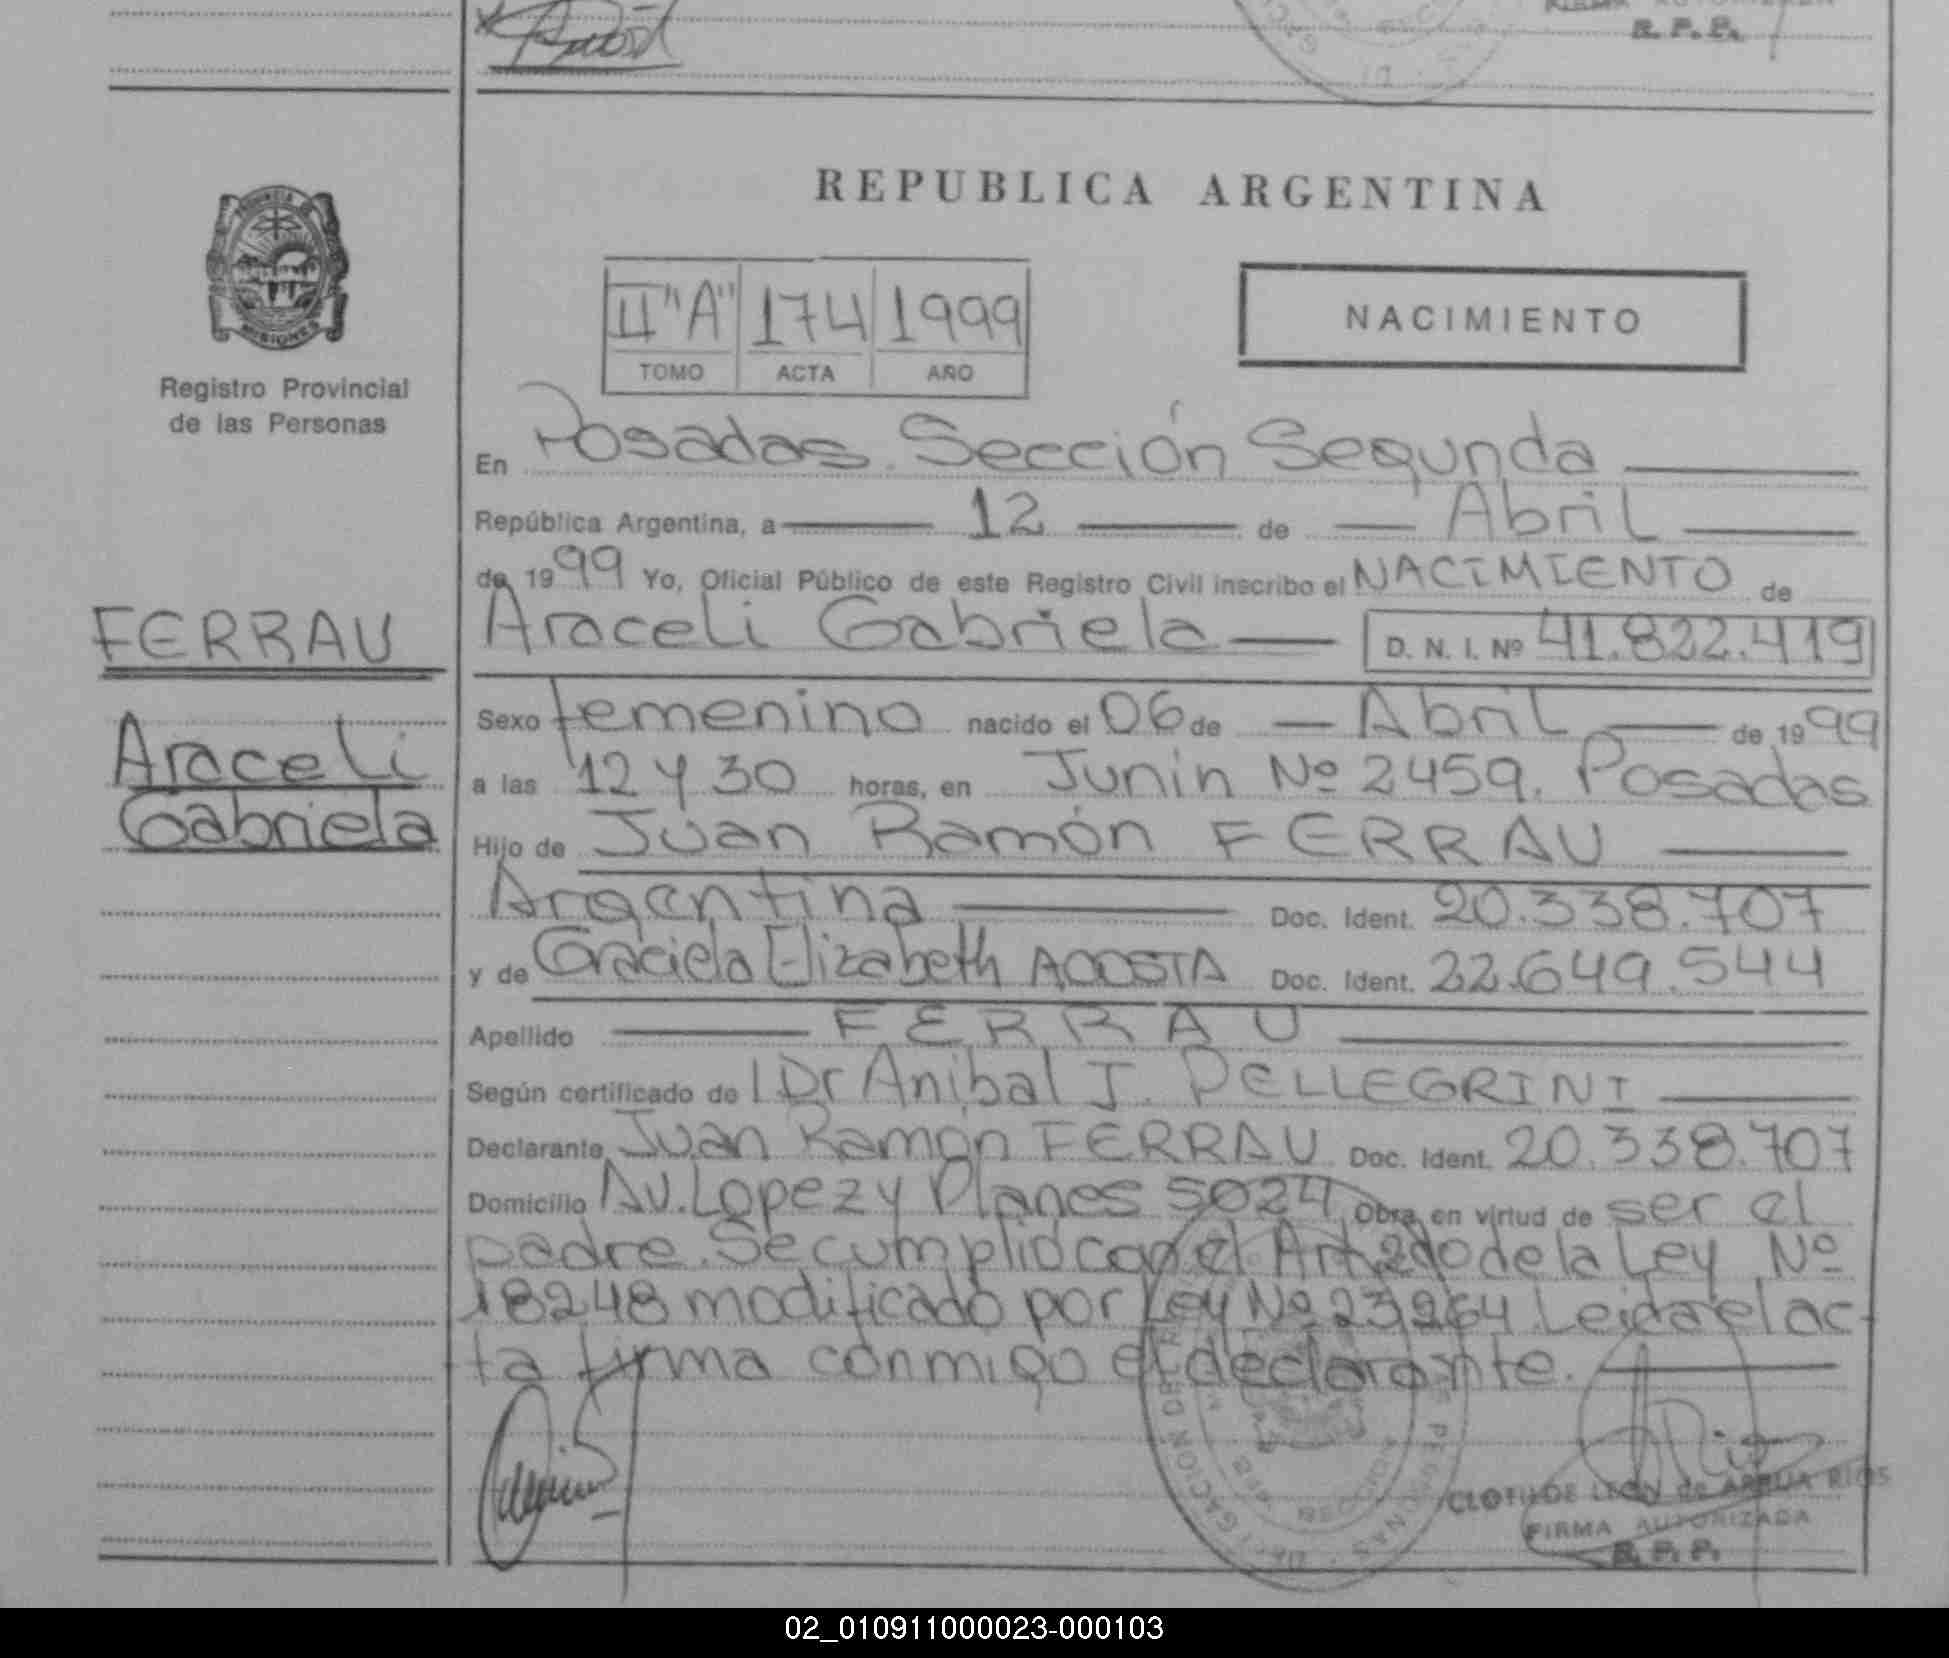 R. P. P.
REPUBLICA ARGENTINA
PROVINCIA DE
MISIONES
Registro Provincial
de las Personas
II "A" 174 1999
TOMO ACTA AÑO
NACIMIENTO
En Posadas. Sección Segunda
República Argentina, a 12 de Abril
de 1999 Yo, Oficial Público de este Registro Civil inscribo el NACIMIENTO de
Araceli Gabriela D. N. I. Nº 41.822.419
FERRAU
Araceli
Gabriela
Sexo femenino nacido el 06 de Abril de 1999
a las 12 y 30 horas, en Junin Nº 2459. Posadas
Hijo de Juan Ramón FERRAU
Argentina Doc. Ident. 20.338.707
y de Graciela Elizabeth ACOSTA Doc. Ident. 22.649.544
Apellido FERRAU
Según certificado de Dr Anibal J. PELLEGRINI
Declarante Juan Ramón FERRAU Doc. Ident. 20.338.707
Domicilio AV. Lopez y Planes 5024 Obra en virtud de ser el
padre. Se cumplio con el Art 2do de la Ley Nº
18248 modificado por Ley Nº 23264 Leida el ac-
ta firma conmigo el declarante.
CLOTILDE LEON de RIOS
FIRMA AUTORIZADA
R. P. P.
02_010911000023-000103